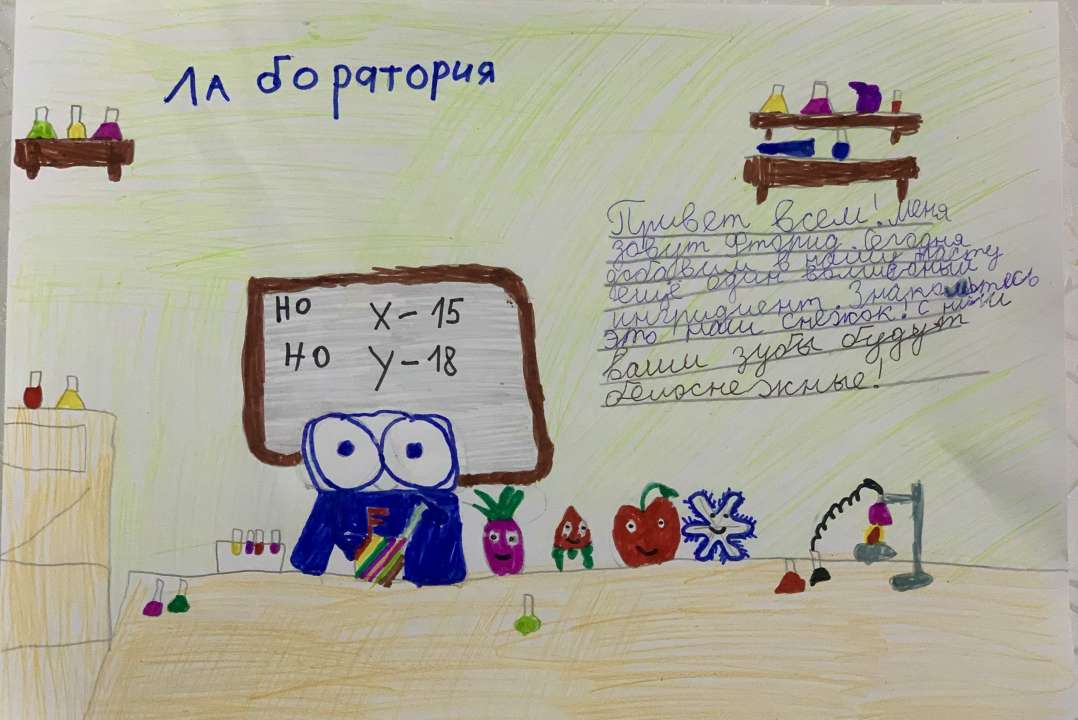 Лаборатория
НО X - 15
НО У - 18
F
Привет всем! Меня
зовут Фторид. Сегодня
добавили в нашу пасту
еще один волшебный
ингридиент. Знакомьтесь
это наш Снежок. С ним
ваши зубы будут
белоснежные!